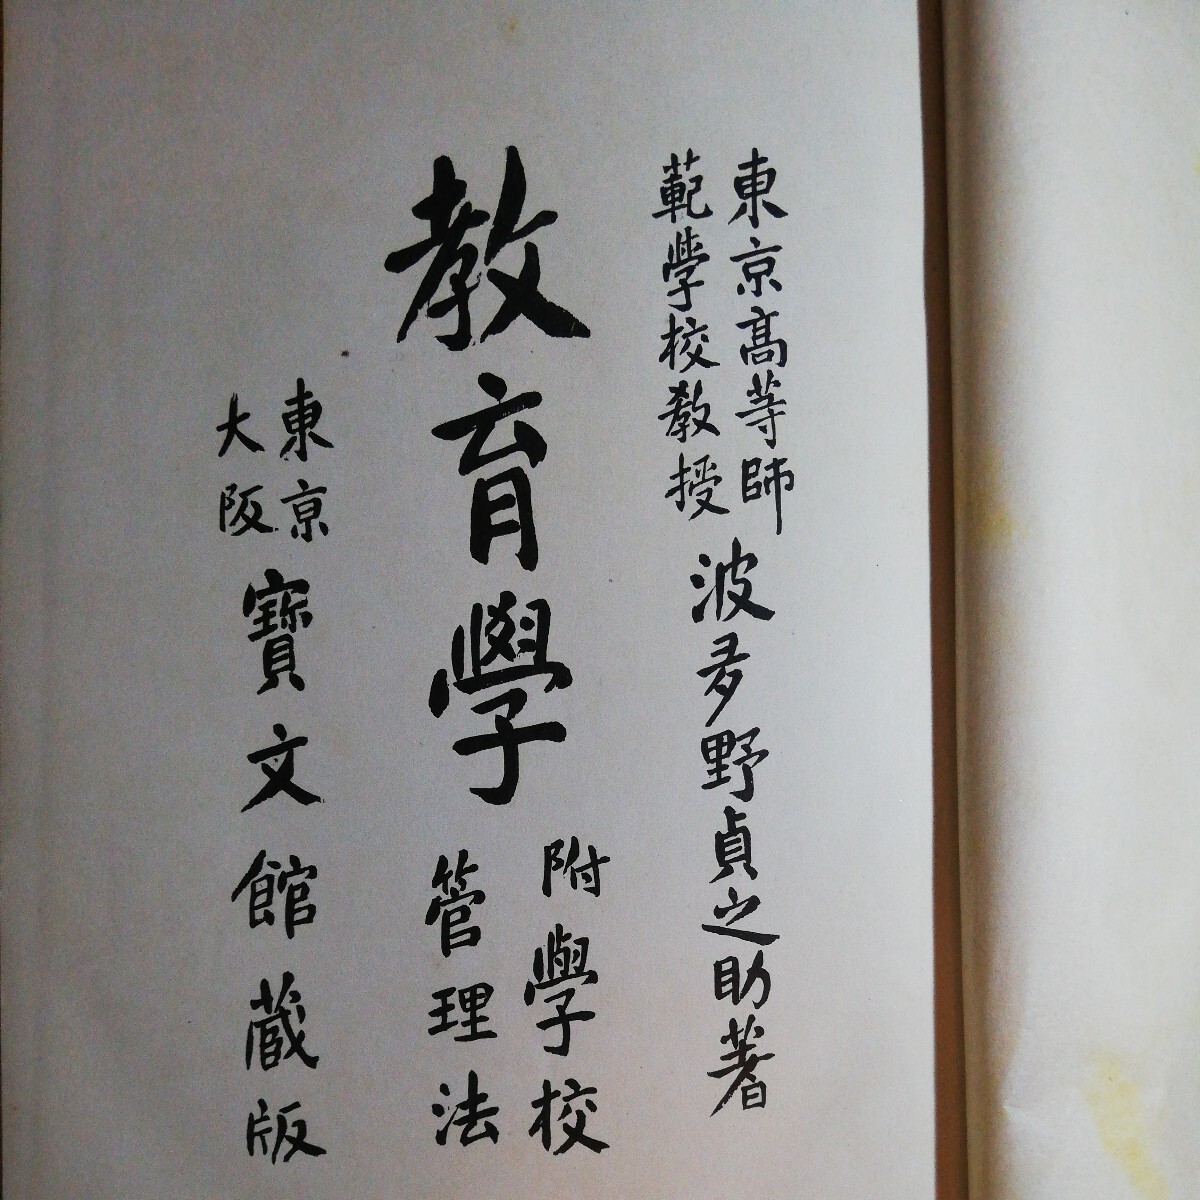 東京高等師
範學校教授
波多野貞之助著
教育學
附學校
管理法
東京
大阪
寶文館蔵版